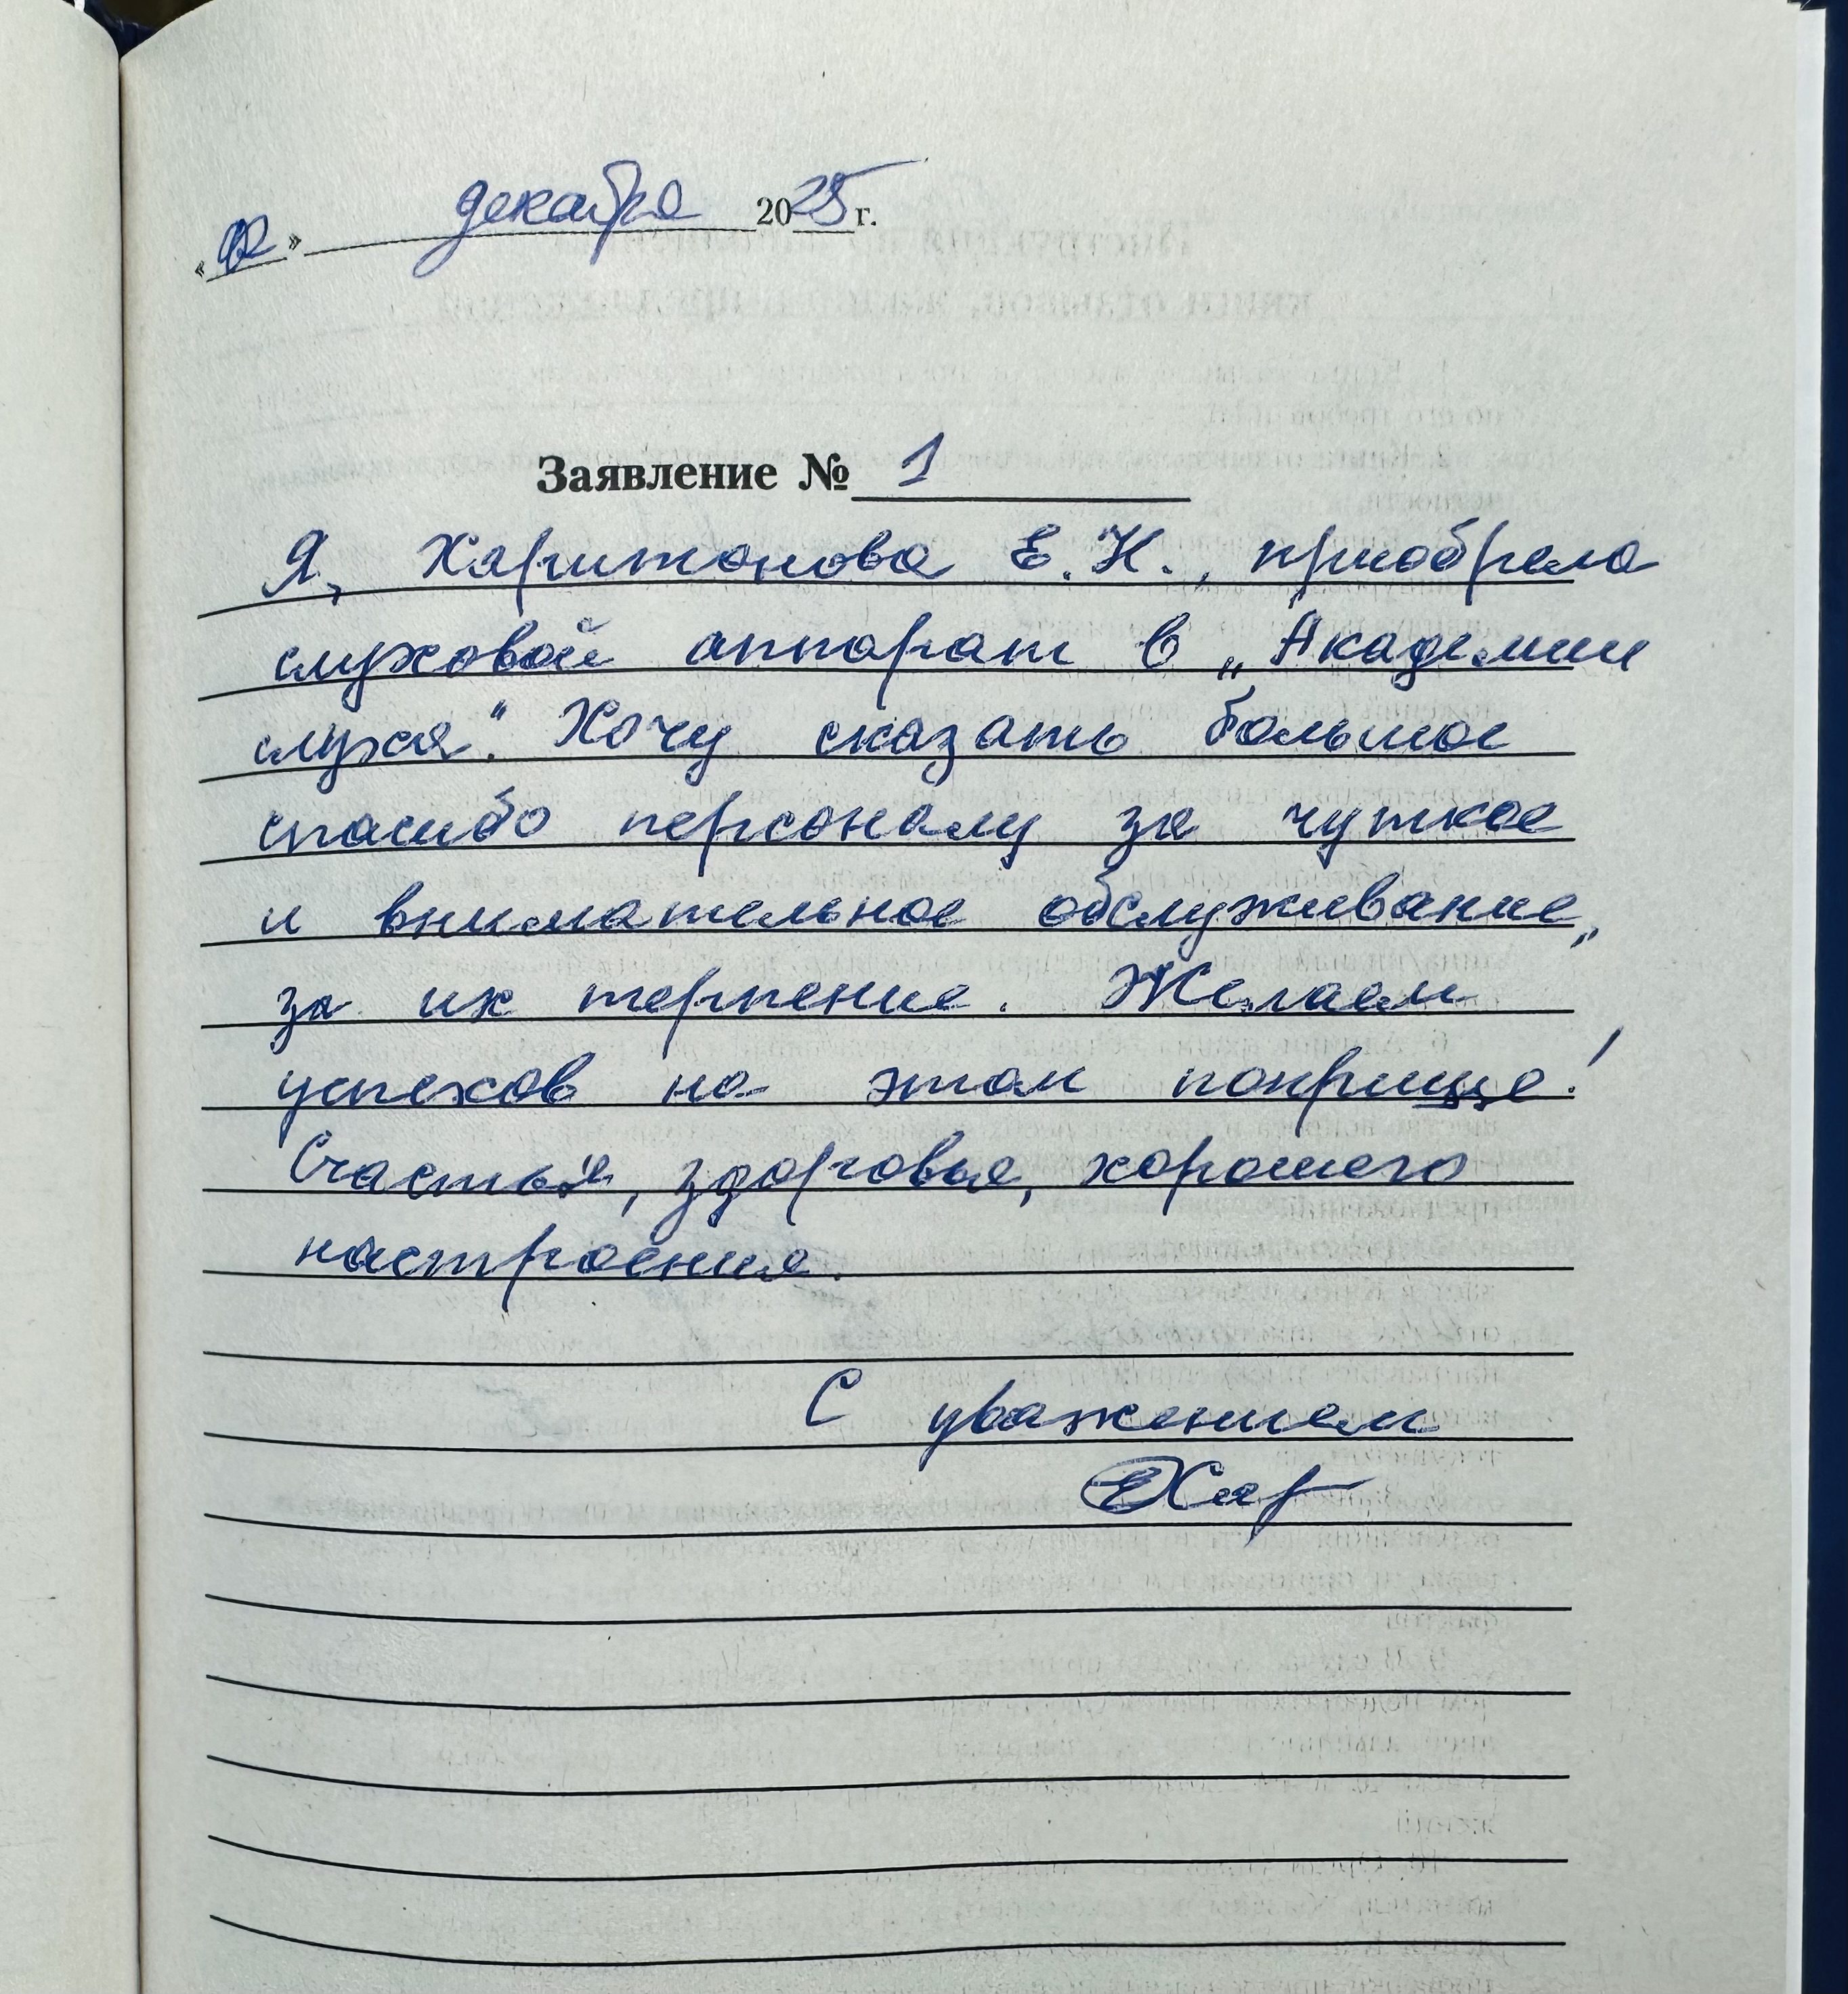 «02» декабря 2025 г.
Заявление № 1
Я, Харитонова Е.Н., приобрела
слуховой аппарат в „Академии
слуха". Хочу сказать большое
спасибо персоналу за чуткое
и внимательное обслуживание,
за их терпение. Желаем
успехов на этом поприще!
Счастья, здоровья, хорошего
настроения.
С уважением
ЕХар